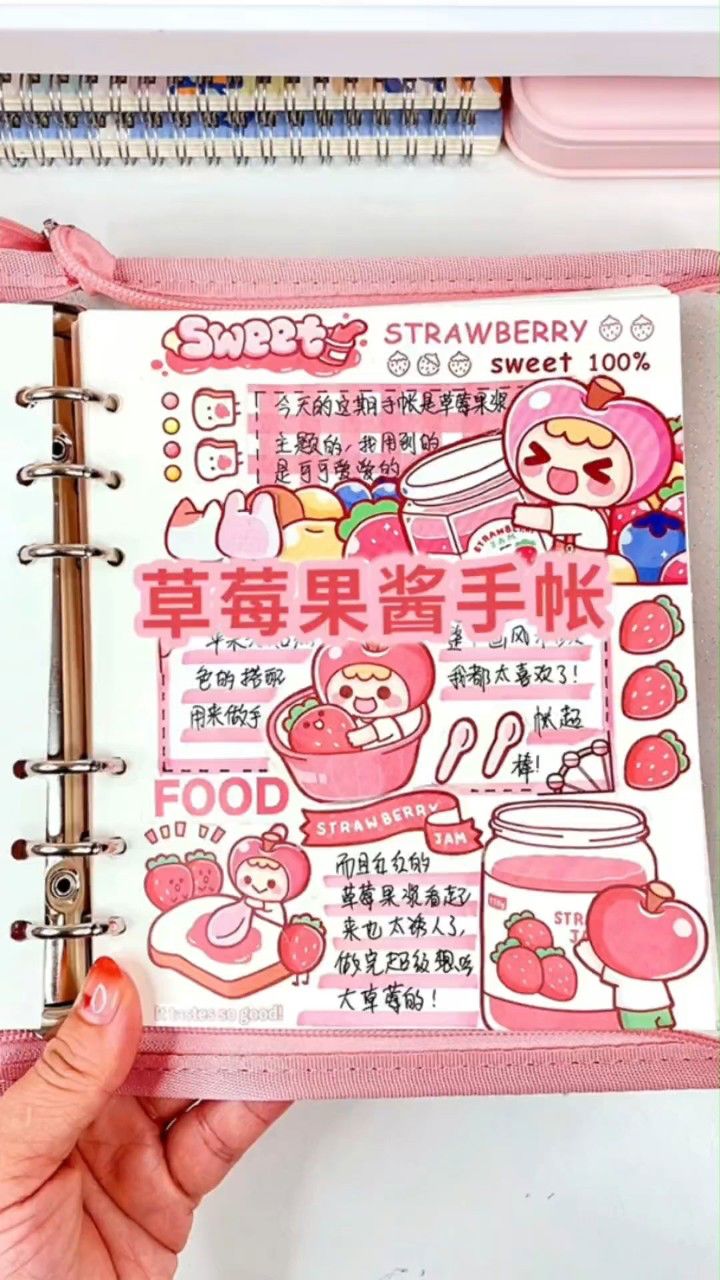 Sweet
STRAWBERRY
sweet 100%
今天的这期手帐是草莓果浆
主题的，我用到的
是可可爱爱的
STRAWBERRY
JAM
草莓果酱手帐
色的搭配
我都太喜欢了！
用来做手
帐超
棒！
FOOD
STRAWBERRY
JAM
而且红红的
草莓果浆看起
来也太诱人了，
做完超级想吃
大草莓的！
STR
JA
It tastes so good!